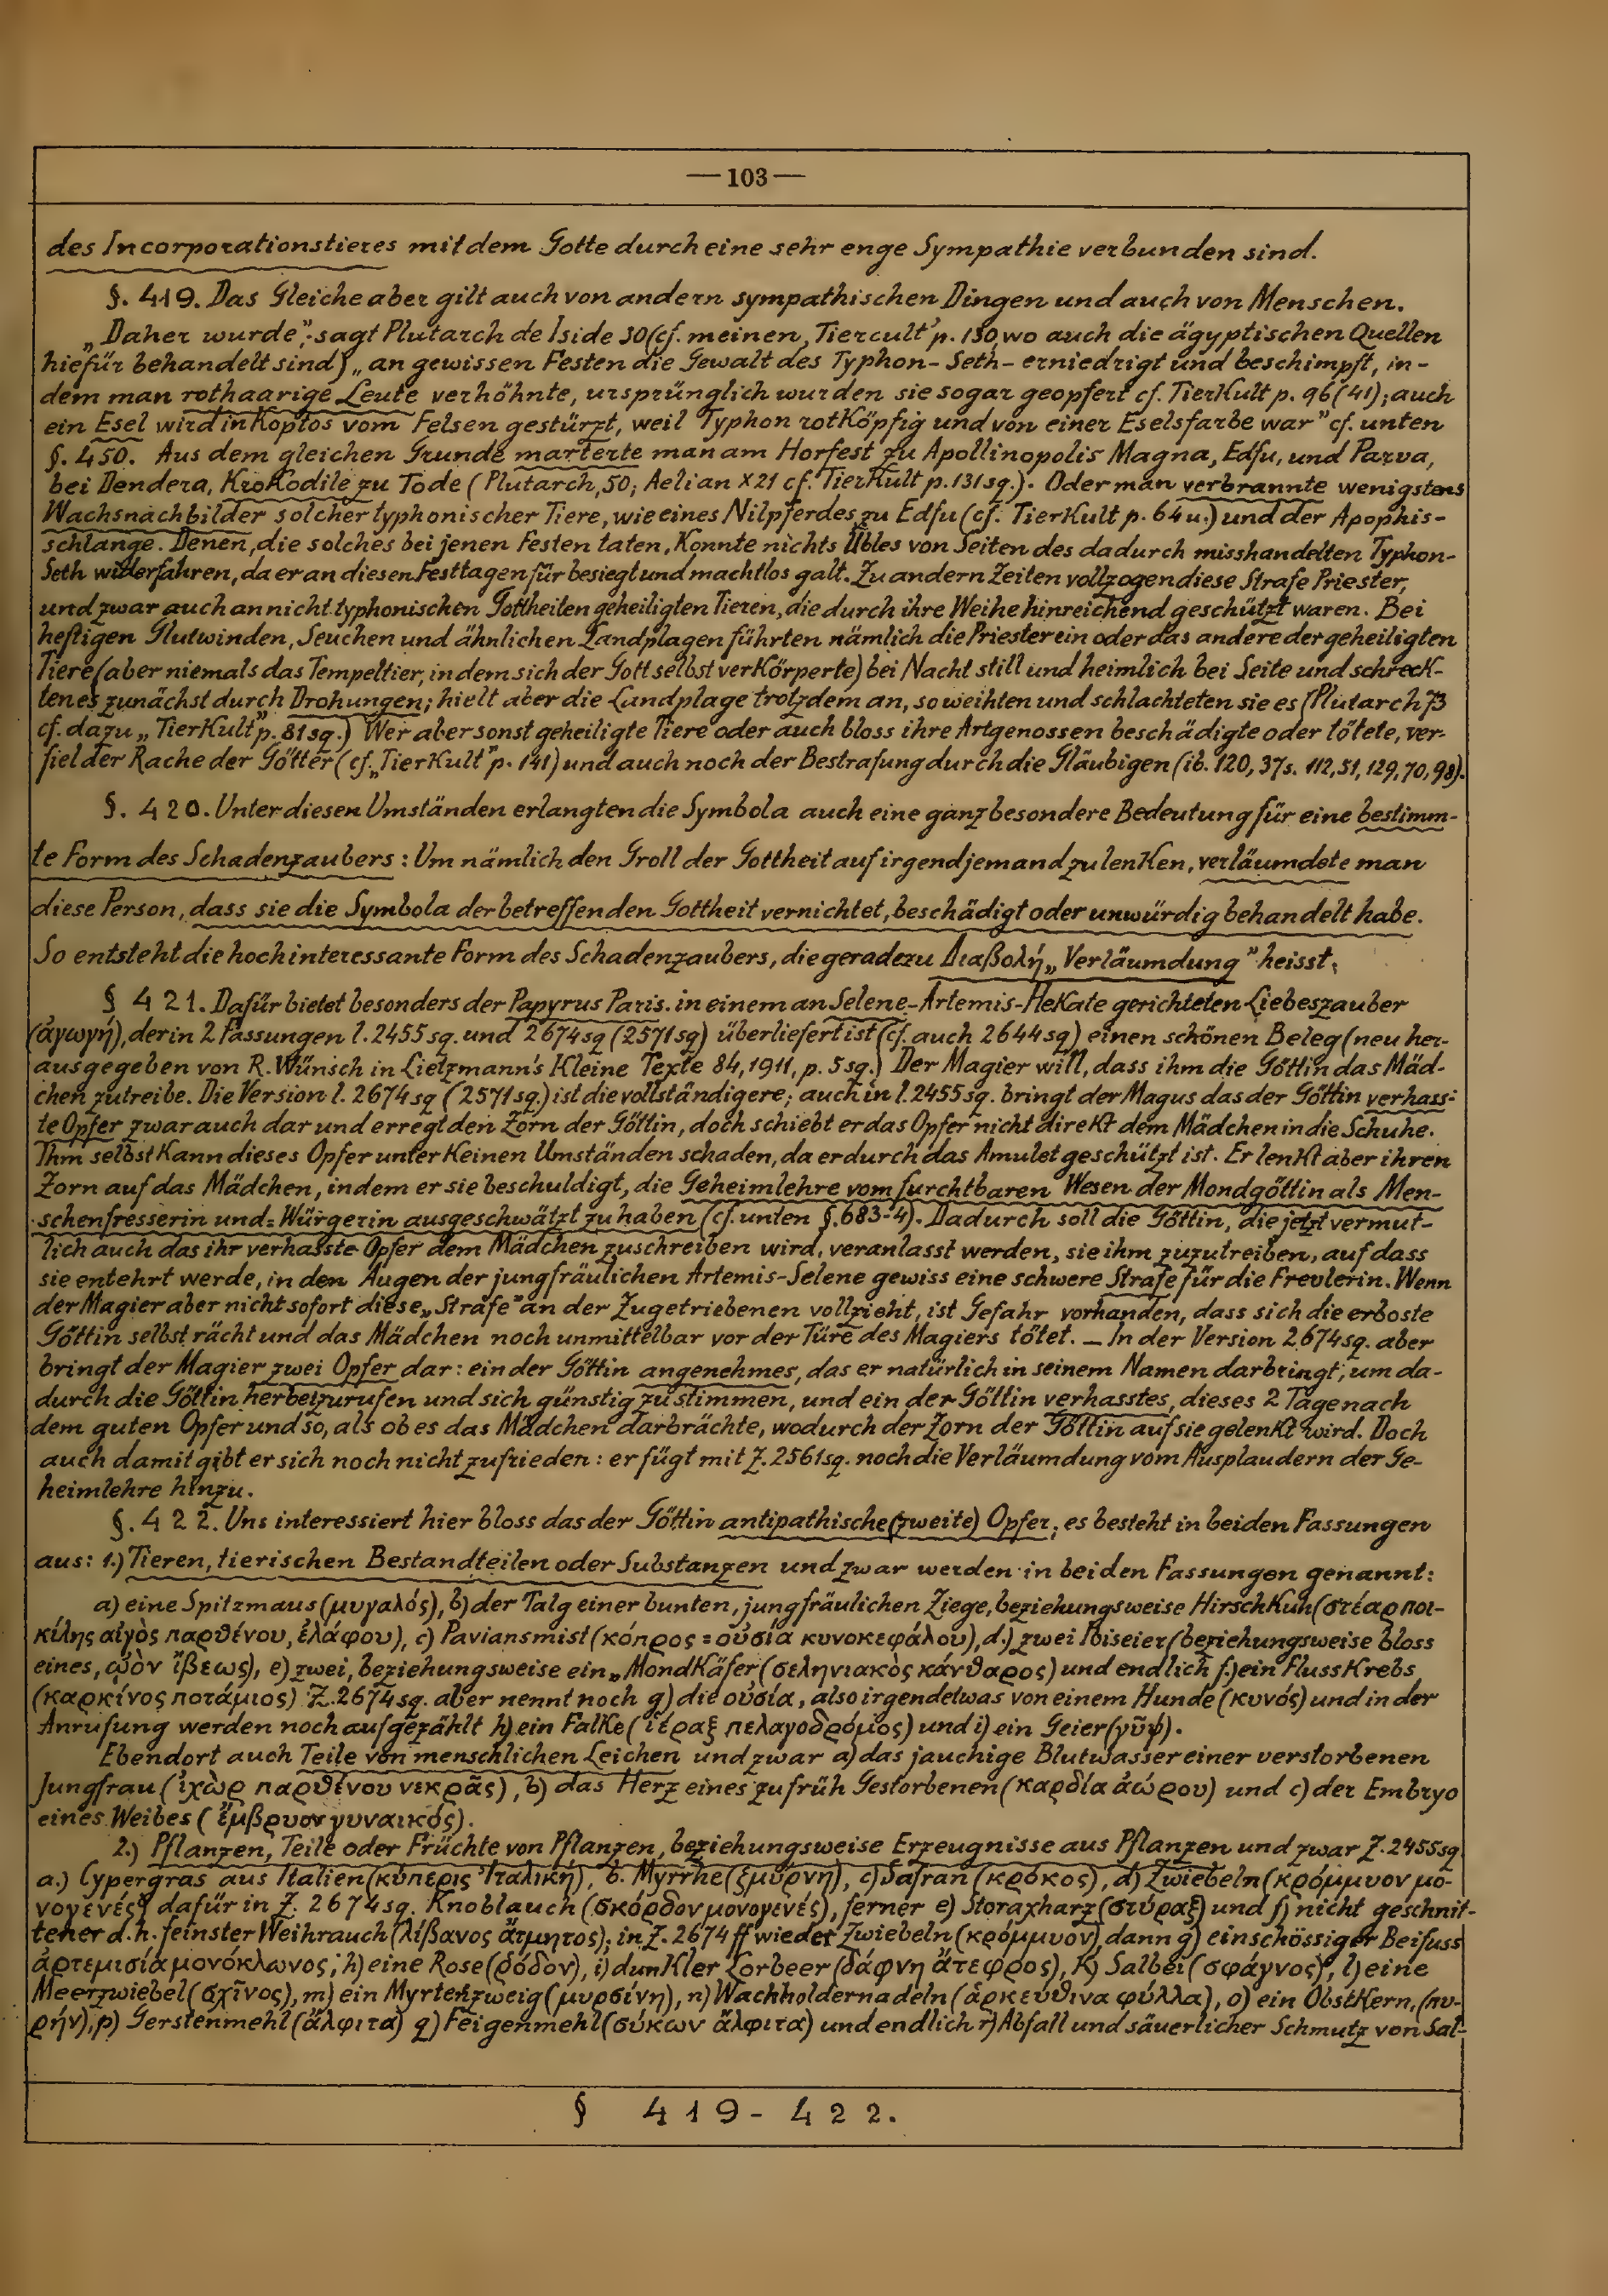 — 103 —
des Incorporationstieres mit dem Gotte durch eine sehr enge Sympathie verbunden sind.
§. 419. Das Gleiche aber gilt auch von andern sympathischen Dingen und auch von Menschen.
„Daher wurde", sagt Plutarch de Iside 30 (cf. meinen „Tiercult" p. 130, wo auch die ägyptischen Quellen
hiefür behandelt sind) „an gewissen Festen die Gewalt des Typhon-Seth-erniedrigt und beschimpft, in-
dem man rothaarige Leute verhöhnte, ursprünglich wurden sie sogar geopfert cf. TierKult p. 96 (41); auch
ein Esel wird in Koptos vom Felsen gestürzt, weil Typhon rotköpfig und von einer Eselsfarbe war" cf. unten
§. 450. Aus dem gleichen Grunde marterte man am Horfest zu Apollinopolis Magna, Edfu, und Parva,
bei Dendera, Krokodile zu Tode (Plutarch, 50; Aelian X 21 cf. TierKult p. 131 sq.). Oder man verbrannte wenigstens
Wachsnachbilder solcher typhonischer Tiere, wie eines Nilpferdes zu Edfu (cf. TierKult p. 64 u.) und der Apophis-
schlange. Denen, die solches bei jenen Festen taten, konnte nichts Übles von Seiten des dadurch misshandelten Typhon-
Seth widerfahren, da er an diesen Festtagen für besiegt und machtlos galt. Zu andern Zeiten vollzogen diese Strafe Priester,
und zwar auch an nicht typhonischen Gottheiten geheiligten Tieren, die durch ihre Weihe hinreichend geschützt waren. Bei
heftigen Glutwinden, Seuchen und ähnlichen Landplagen führten nämlich die Priester ein oder das andere der geheiligten
Tiere (aber niemals das Tempeltier, in dem sich der Gott selbst verkörperte) bei Nacht still und heimlich bei Seite und schreck-
ten es zunächst durch Drohungen; hielt aber die Landplage trotzdem an, so weihten und schlachteten sie es (Plutarch 73
cf. dazu „TierKult" p. 81 sq.) Wer aber sonst geheiligte Tiere oder auch bloss ihre Artgenossen beschädigte oder tötete, ver-
fiel der Rache der Götter (cf. „TierKult" p. 141) und auch noch der Bestrafung durch die Gläubigen (ib. 120, 37s. 112, 51, 129, 70, 98).
§. 420. Unter diesen Umständen erlangten die Symbola auch eine ganz besondere Bedeutung für eine bestimm-
te Form des Schadenzaubers: Um nämlich den Groll der Gottheit auf irgend jemand zu lenken, verläumdete man
diese Person, dass sie die Symbola der betreffenden Gottheit vernichtet, beschädigt oder unwürdig behandelt habe.
So entsteht die hochinteressante Form des Schadenzaubers, die geradezu Διαβολή „Verläumdung" heisst.
§ 421. Dafür bietet besonders der Papyrus Paris. in einem an Selene-Artemis-Hekate gerichteten Liebeszauber
(ἀγωγή), der in 2 Fassungen l. 2455 sq. und 2674 sq (2571 sq) überliefert ist (cf. auch 2644 sq) einen schönen Beleg (neu her-
ausgegeben von R. Wünsch in Lietzmann's Kleine Texte 84, 1911, p. 5 sq.) Der Magier will, dass ihm die Göttin das Mäd-
chen zutreibe. Die Version l. 2674 sq (2571 sq.) ist die vollständigere; auch in l. 2455 sq. bringt der Magus das der Göttin verhass-
te Opfer zwar auch dar und erregt den Zorn der Göttin, doch schiebt er das Opfer nicht direkt dem Mädchen in die Schuhe.
Ihm selbst kann dieses Opfer unter keinen Umständen schaden, da er durch das Amulet geschützt ist. Er lenkt aber ihren
Zorn auf das Mädchen, indem er sie beschuldigt, die Geheimlehre vom furchtbaren Wesen der Mondgöttin als Men-
schenfresserin und = Würgerin ausgeschwätzt zu haben (cf. unten §. 683-4). Dadurch soll die Göttin, die jetzt vermut-
lich auch das ihr verhasste Opfer dem Mädchen zuschreiben wird, veranlasst werden, sie ihm zuzutreiben, auf dass
sie entehrt werde, in den Augen der jungfräulichen Artemis-Selene gewiss eine schwere Strafe für die Frevlerin. Wenn
der Magier aber nicht sofort diese „Strafe" an der Zugetriebenen vollzieht, ist Gefahr vorhanden, dass sich die erboste
Göttin selbst rächt und das Mädchen noch unmittelbar vor der Türe des Magiers tötet. — In der Version 2674 sq. aber
bringt der Magier zwei Opfer dar: ein der Göttin angenehmes, das er natürlich in seinem Namen darbringt, um da-
durch die Göttin herbeizurufen und sich günstig zu stimmen, und ein der Göttin verhasstes, dieses 2 Tage nach
dem guten Opfer und so, als ob es das Mädchen darbrächte, wodurch der Zorn der Göttin auf sie gelenkt wird. Doch
auch damit gibt er sich noch nicht zufrieden: er fügt mit Z. 2561 sq. noch die Verläumdung vom Ausplaudern der Ge-
heimlehre hinzu.
§. 422. Uns interessiert hier bloss das der Göttin antipathische (zweite) Opfer; es besteht in beiden Fassungen
aus: 1.) Tieren, tierischen Bestandteilen oder Substanzen und zwar werden in beiden Fassungen genannt:
a) eine Spitzmaus (μυγαλός), b) der Talg einer bunten, jungfräulichen Ziege, beziehungsweise Hirschkuh (στέαρ ποι-
κίλης αἰγὸς παρθένου, ἐλάφου), c) Paviansmist (κόπρος = οὐσία κυνοκεφάλου), d.) zwei Ibiseier (beziehungsweise bloss
eines, ᾠὸν ἴβεως), e) zwei, beziehungsweise ein „Mondkäfer (σεληνιακὸς κάνθαρος) und endlich f.) ein Flusskrebs
(καρκίνος ποτάμιος) Z. 2674 sq. aber nennt noch g) die οὐσία, also irgendetwas von einem Hunde (κυνός) und in der
Anrufung werden noch aufgezählt h) ein Falke (ἱέραξ πελαγοδρόμος) und i) ein Geier (γῦψ).
Ebendort auch Teile von menschlichen Leichen und zwar a) das jauchige Blutwasser einer verstorbenen
Jungfrau (ἰχὼρ παρθένου νεκρᾶς), b) das Herz eines zu früh Gestorbenen (καρδία ἀώρου) und c) der Embryo
eines Weibes (ἔμβρυον γυναικός).
2.) Pflanzen, Teile oder Früchte von Pflanzen, beziehungsweise Erzeugnisse aus Pflanzen und zwar Z. 2455 sq
a.) Cypergras aus Italien (κύπερις Ἰταλική), b. Myrrhe (ζμύρνη), c) Safran (κρόκος), d) Zwiebeln (κρόμμυον μο-
νογενές) dafür in Z. 2674 sq. Knoblauch (σκόρδον μονογενές), ferner e) Storaxharz (στύραξ) und f) nicht geschnit-
tener d.h. feinster Weihrauch (λίβανος ἄτμητος); in Z. 2674 ff wieder Zwiebeln (κρόμμυον), dann g) einschössiger Beifuss
ἀρτεμισία μονόκλωνος; h) eine Rose (ῥόδον), i) dunkler Lorbeer (δάφνη ἄτεφρος), K) Salbei (σφάγνος), l) eine
Meerzwiebel (σχῖνος), m) ein Myrtenzweig (μυρσίνη), n) Wachholdernadeln (ἀρκεύθινα φύλλα), o) ein Obstkern, (πυ-
ρήν), p) Gerstenmehl (ἄλφιτα) q) Feigenmehl (σύκων ἄλφιτα) und endlich r) Abfall und säuerlicher Schmutz von Sal-
§ 419-422.